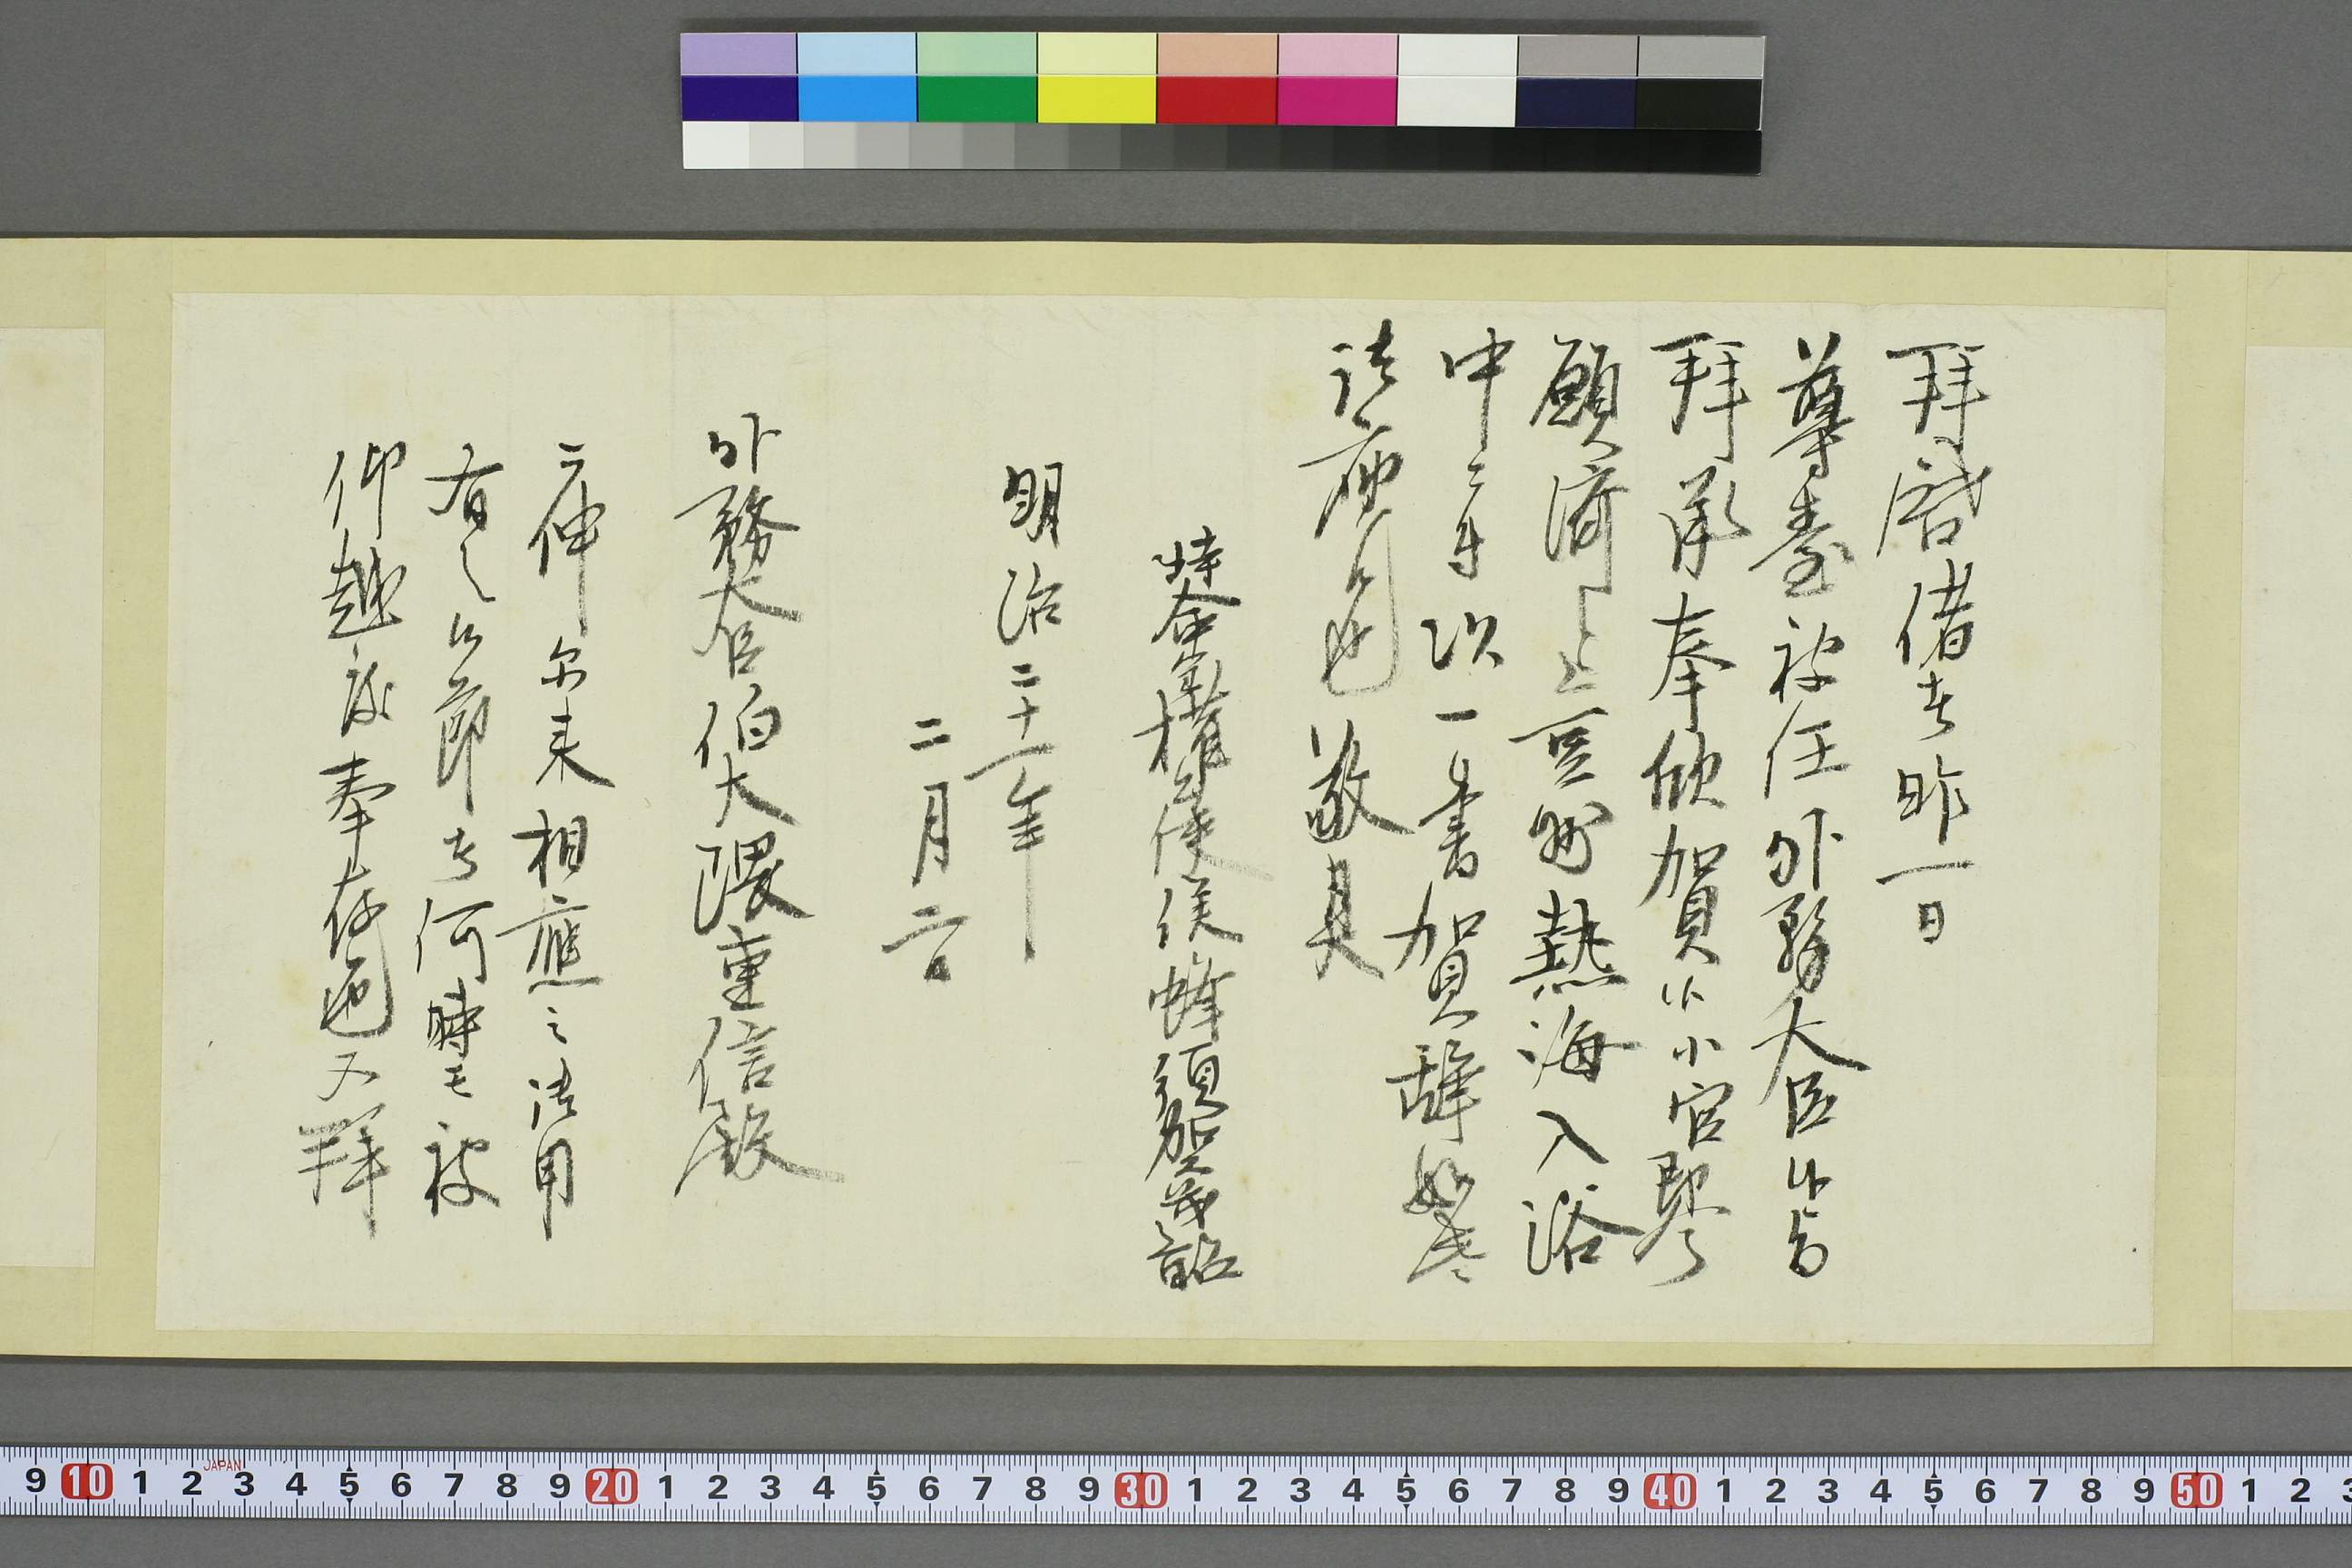 拝啓偖者昨一日
尊臺被任外務大臣候旨
拝承奉欣賀候小官即今
願済之上豆州熱海入浴
中ニ付不取敢一書賀辞如此
御座候也 敬具
特命全権公使侯爵蜂須賀茂韶
明治二十一年
二月二日
外務大臣伯大隈重信殿
二伸 尓来相應之御用
有之候節者何時モ被
仰越度奉存候也 又拝
9 10 1 2 3 4 5 6 7 8 9 20 1 2 3 4 5 6 7 8 9 30 1 2 3 4 5 6 7 8 9 40 1 2 3 4 5 6 7 8 9 50 1 2 3
JAPAN